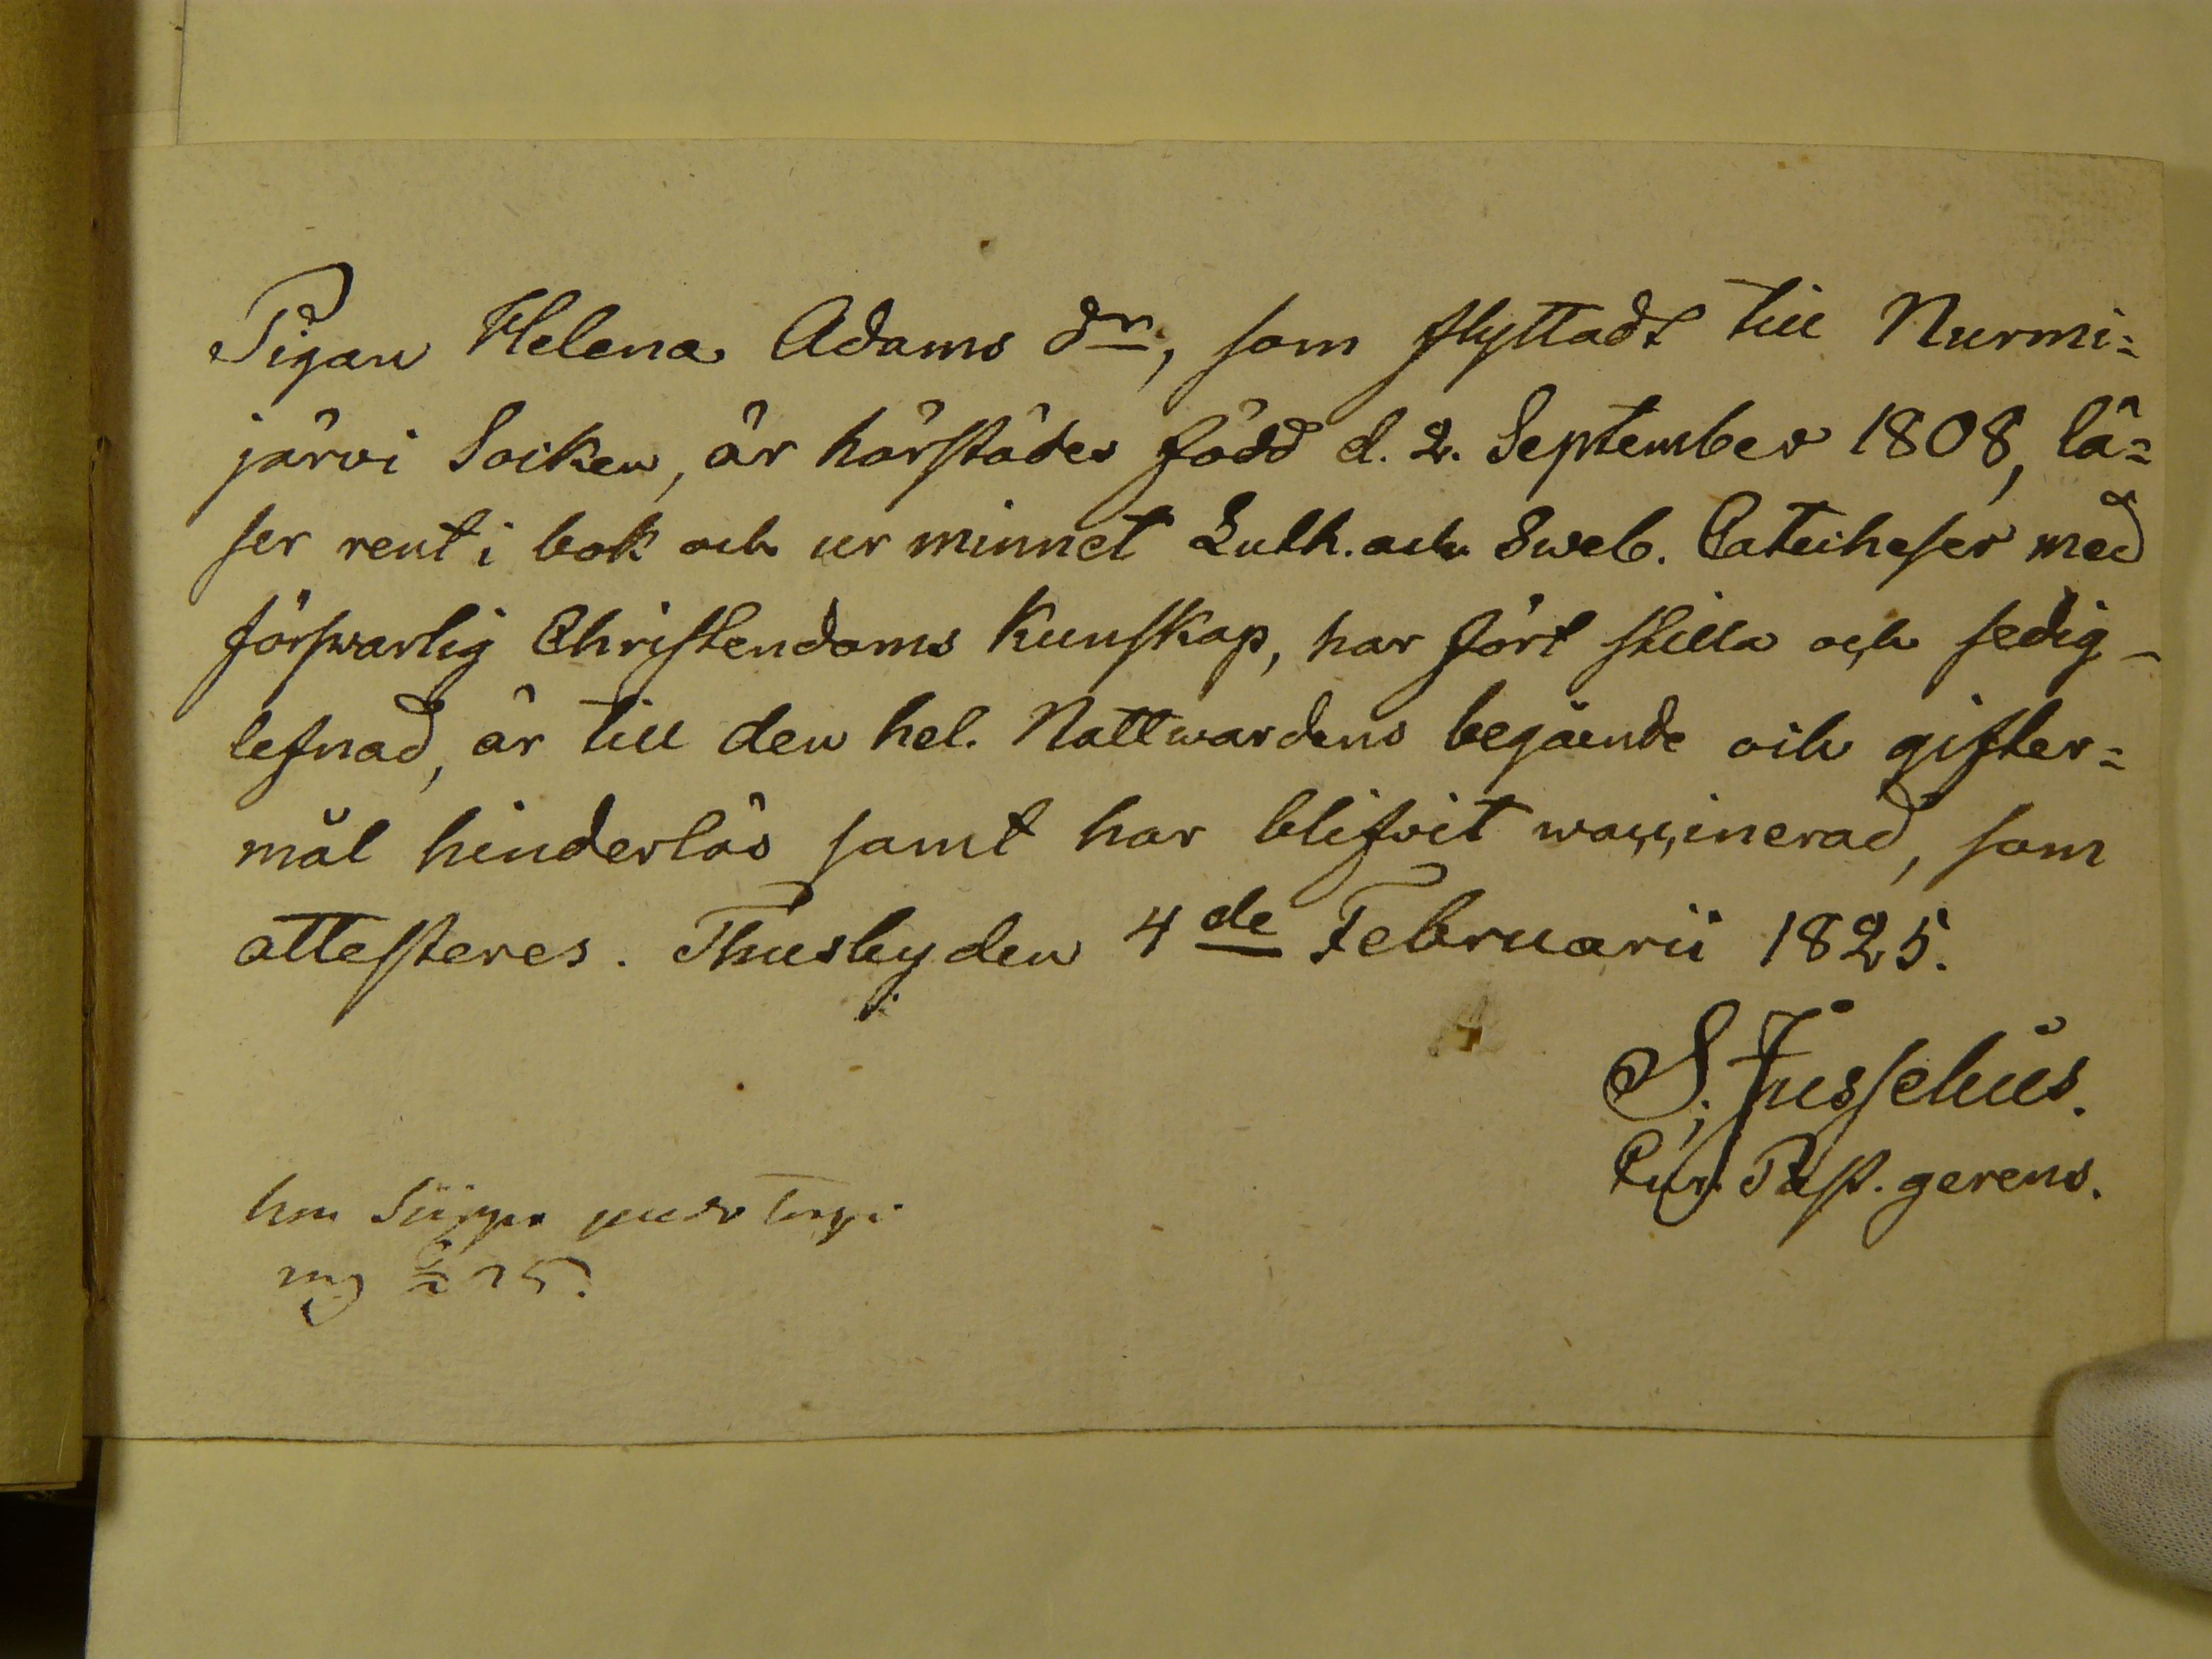 Pigan Helena Adams dr, som flyttadt till Nurmi=
järvi Socken, är härstädes född d. 2. September 1808, lä=
ser rent i bok och ur minnet Luth. och Sweb. Catecheser med
förswarlig Christendoms Kunskap, har fört stilla och sedig
lefnad, är till den hel. Nattwardens begående och gifter=
mål hinderlös samt har blifvit waccinerad, som
attesteres. Thusby den 4de Februarii 1825.
S. Fusselius.
Past. gerens.